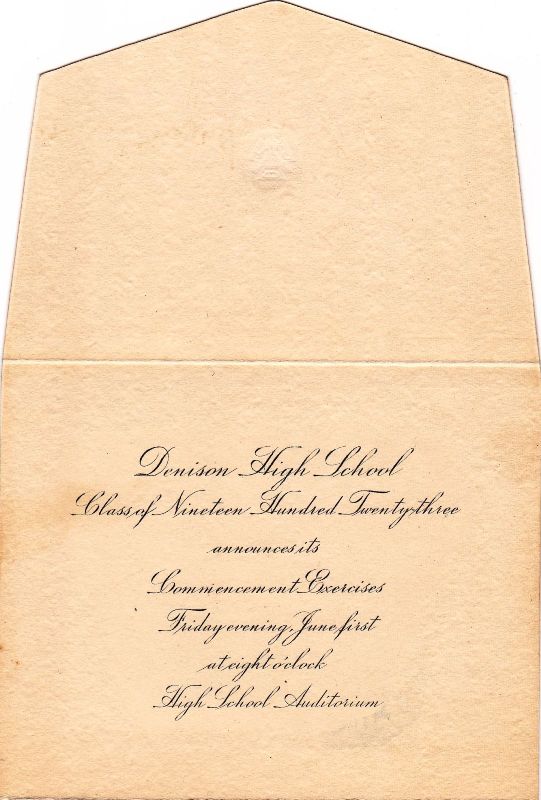 Denison High School
Class of Nineteen Hundred Twenty-three
announces its
Commencement Exercises
Friday evening, June first
at eight o'clock
High School Auditorium